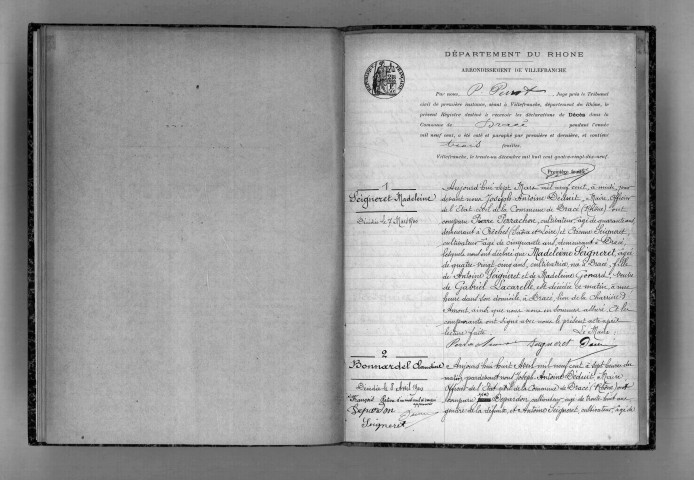 DÉPARTEMENT DU RHONE
ARRONDISSEMENT DE VILLEFRANCHE
Par nous, P. Juge près le Tribunal
civil de première instance, séant à Villefranche, département du Rhône, le
présent Registre destiné à recevoir les déclarations de Décès dans la
Commune de Dracé pendant l'année
mil neuf cent, a été coté et paraphé par première et dernière, et contient
feuilles.
Villefranche, le trente-un décembre mil huit cent quatre-vingt-dix-neuf.
Première feuille
1
Seigneret Madeleine
Décédée le 7 Mars 1900
Aujourd'hui sept Mars mil neuf cent, à midi, par
devant nous Joseph Antoine Déduit, Maire, Officier
de l'Etat civil de la Commune de Dracé (Rhône) sont
comparus Pierre Perrachon, cultivateur, âgé de quarante ans,
demeurant à Crêches (Saône et Loire) et Etienne Seigneret,
cultivateur, âgé de cinquante ans, demeurant à Dracé,
lesquels nous ont déclaré que Madeleine Seigneret, âgée
de quatre vingt cinq ans, cultivatrice, née à Dracé, fille
de Antoine Seigneret et de Madeleine Gonard, veuve
de Gabriel Lacarelle, est décédée ce matin, à une
heure dans son domicile, à Dracé, lieu de la Charrière d'
Amont, ainsi que nous nous en sommes assuré. Et les
comparants ont signé avec nous le présent acte après
lecture faite. Le Maire
Seigneret
2
Bonnardel Claudine
Décédée le 8 Avril 1900
François
Depardon
Seigneret
Aujourd'hui huit Avril mil neuf cent à sept heures du
matin, pardevant nous Joseph Antoine Déduit, Maire,
Officier de l'Etat civil de la Commune de Dracé (Rhône) sont
comparus Depardon, cultivateur, âgé de trente huit ans
gendre de la défunte, et Antoine Seigneret, cultivateur, âgé de